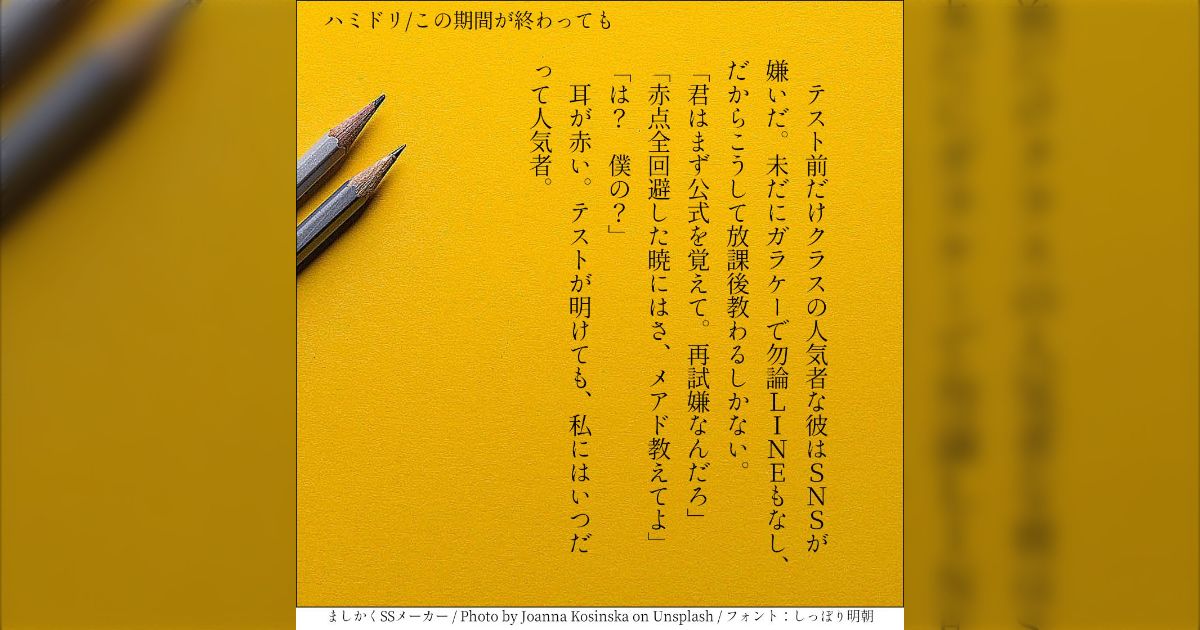 ハミドリ/この期間が終わっても
　テスト前だけクラスの人気者な彼はSNSが
嫌いだ。未だにガラケーで勿論LINEもなし、
だからこうして放課後教わるしかない。
「君はまず公式を覚えて。再試嫌なんだろ」
「赤点全回避した暁にはさ、メアド教えてよ」
「は？　僕の？」
　耳が赤い。テストが明けても、私にはいつだ
って人気者。
ましかくSSメーカー / Photo by Joanna Kosinska on Unsplash / フォント：しっぽり明朝